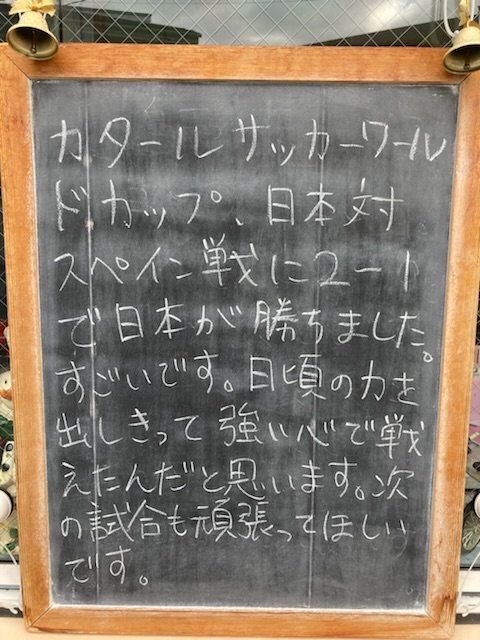 カタールサッカーワール
ドカップ、日本対
スペイン戦に2ー1
で日本が勝ちました。
すごいです。日頃の力を
出しきって強い心で戦
えたんだと思います。次
の試合も頑張ってほしい
です。